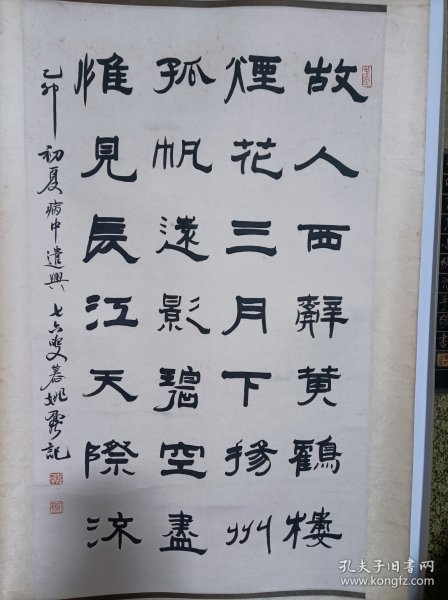 故人西辭黄鶴樓
煙花三月下揚州
孤帆遠影碧空盡
惟見長江天際流
乙卯初夏病中遣興七六叟姚記
孔夫子旧书网